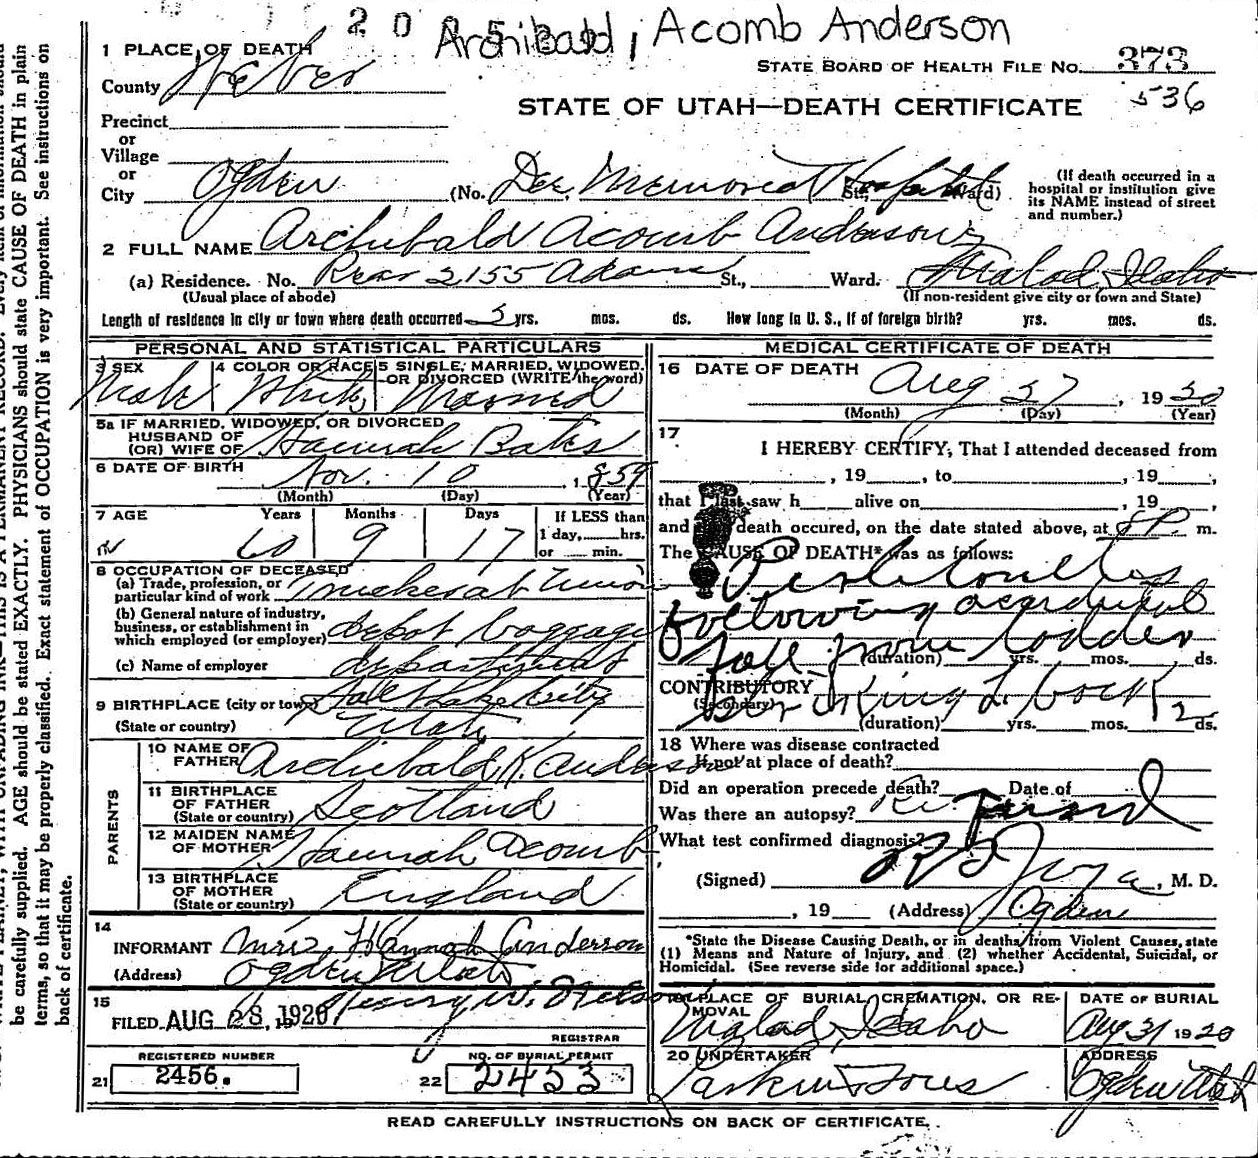 20
Archibald, Acomb Anderson
1 PLACE OF DEATH
STATE BOARD OF HEALTH FILE No. 373
536
County Weber
STATE OF UTAH—DEATH CERTIFICATE
Precinct
or
Village
or
City Ogden (No. Dee Memorial Hospital St., Ward)
(If death occurred in a hospital or institution give its NAME instead of street and number.)
2 FULL NAME Archibald Acomb Anderson
(a) Residence. No. Rear 2155 Adams St., Ward. Malad, Idaho
(Usual place of abode) (If non-resident give city or town and State)
Length of residence in city or town where death occurred 3 yrs. mos. ds. How long in U. S., if of foreign birth? yrs. mos. ds.
PERSONAL AND STATISTICAL PARTICULARS
3 SEX Male
4 COLOR OR RACE White
5 SINGLE, MARRIED, WIDOWED, OR DIVORCED (WRITE the word) Married
5a IF MARRIED, WIDOWED, OR DIVORCED
HUSBAND OF
(OR) WIFE OF Hannah Bates
6 DATE OF BIRTH Nov. 10, 1859
(Month) (Day) (Year)
7 AGE Years Months Days
60 9 17
If LESS than
1 day, hrs.
or min.
8 OCCUPATION OF DECEASED
(a) Trade, profession, or
particular kind of work Truckerat Union
(b) General nature of industry,
business, or establishment in
which employed (or employer) depot baggage
(c) Name of employer department
9 BIRTHPLACE (city or town) Salt Lake City
(State or country) Utah
PARENTS
10 NAME OF
FATHER Archibald K. Anderson
11 BIRTHPLACE
OF FATHER
(State or country) Scotland
12 MAIDEN NAME
OF MOTHER Hannah Acomb
13 BIRTHPLACE
OF MOTHER
(State or country) England
14
INFORMANT Mrs. Hannah Anderson
(Address) Ogden Utah
15
FILED AUG 28, 1920 Henry W. Nelson
REGISTRAR
REGISTERED NUMBER
21 2456.
NO. OF BURIAL PERMIT
22 2453
MEDICAL CERTIFICATE OF DEATH
16 DATE OF DEATH Aug 27, 1920
(Month) (Day) (Year)
17
I HEREBY CERTIFY, That I attended deceased from
, 19 , to , 19 ,
that I last saw h alive on , 19 ,
and death occured, on the date stated above, at 8 P. m.
The CAUSE OF DEATH* was as follows:
Peritonitis
following accidental
fall from ladder
(duration) yrs. mos. ds.
CONTRIBUTORY
(Secondary)
(duration) yrs. mos. 2 ds.
18 Where was disease contracted
If not at place of death?
Did an operation precede death? Date of
Was there an autopsy?
What test confirmed diagnosis?
(Signed) , M. D.
, 19 (Address) Ogden
*State the Disease Causing Death, or in deaths from Violent Causes, state
(1) Means and Nature of Injury, and (2) whether Accidental, Suicidal, or
Homicidal. (See reverse side for additional space.)
19 PLACE OF BURIAL, CREMATION, OR REMOVAL
Malad, Idaho
DATE OF BURIAL
Aug 31 1920
20 UNDERTAKER
Larkin & Sons
ADDRESS
Ogden Utah
READ CAREFULLY INSTRUCTIONS ON BACK OF CERTIFICATE.
be carefully supplied. AGE should be stated EXACTLY. PHYSICIANS should state CAUSE OF DEATH in plain
terms, so that it may be properly classified. Exact statement of OCCUPATION is very important. See instructions on
back of certificate.